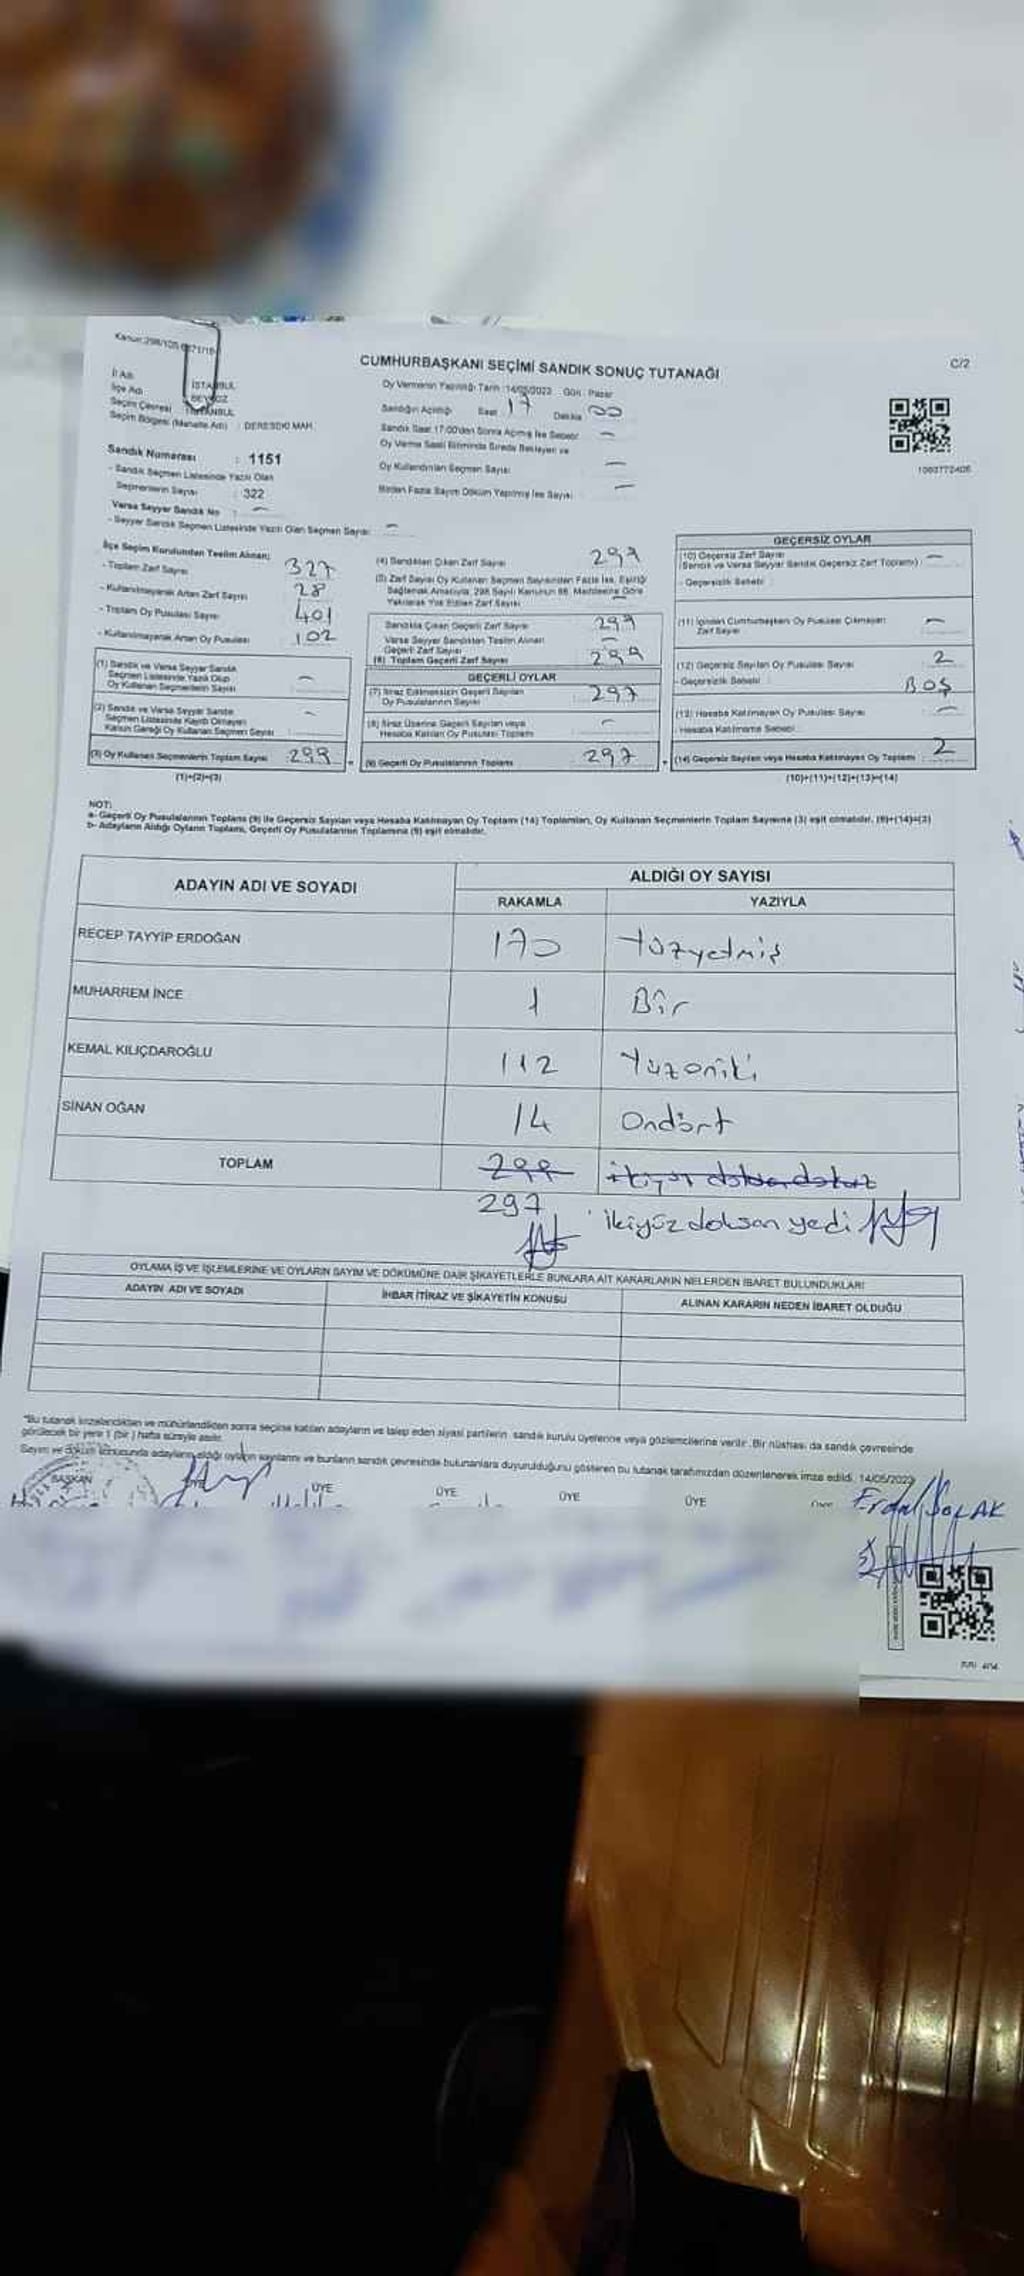 CUMHURBAŞKANI SEÇİMİ SANDIK SONUÇ TUTANAĞI
C/2
İl Adı : İSTANBUL
İlçe Adı : BEYKOZ
Seçim Çevresi : İSTANBUL
Seçim Bölgesi (Mahalle Adı) : DERESEKİ MAH.
Oy Vermenin Yapıldığı Tarih :14/05/2023 Gün : Pazar
Sandığın Açıldığı Saat 17 Dakika 00
Sandık Saat 17:00'den Sonra Açılmış İse Sebebi —
Oy Verme Saati Bitiminde Sırada Bekleyen ve
Oy Kullandırılan Seçmen Sayısı —
Birden Fazla Sayım Döküm Yapılmış İse Sayısı —
Sandık Numarası : 1151
- Sandık Seçmen Listesinde Yazılı Olan
Seçmenlerin Sayısı : 322
Varsa Seyyar Sandık No : —
- Seyyar Sandık Seçmen Listesinde Yazılı Olan Seçmen Sayısı —
İlçe Seçim Kurulundan Teslim Alınan;
- Toplam Zarf Sayısı 327
- Kullanılmayarak Artan Zarf Sayısı 28
- Toplam Oy Pusulası Sayısı 401
- Kullanılmayarak Artan Oy Pusulası 102
(1) Sandık ve Varsa Seyyar Sandık
Seçmen Listesinde Yazılı Olup
Oy Kullanan Seçmenlerin Sayısı —
(2) Sandık ve Varsa Seyyar Sandık
Seçmen Listesinde Kayıtlı Olmayan
Kanun Gereği Oy Kullanan Seçmen Sayısı —
(3) Oy Kullanan Seçmenlerin Toplam Sayısı 299
(1)+(2)=(3)
(4) Sandıktan Çıkan Zarf Sayısı 299
(5) Zarf Sayısı Oy Kullanan Seçmen Sayısından Fazla İse, Eşitliği
Sağlamak Amacıyla, 298 Sayılı Kanunun 98. Maddesine Göre
Yakılarak Yok Edilen Zarf Sayısı —
Sandıkta Çıkan Geçerli Zarf Sayısı 299
Varsa Seyyar Sandıktan Teslim Alınan
Geçerli Zarf Sayısı —
(6) Toplam Geçerli Zarf Sayısı 299
GEÇERLİ OYLAR
(7) İtiraz Edilmeksizin Geçerli Sayılan
Oy Pusulalarının Sayısı 297
(8) İtiraz Üzerine Geçerli Sayılan veya
Hesaba Katılan Oy Pusulası Toplamı —
(9) Geçerli Oy Pusulalarının Toplamı 297
GEÇERSİZ OYLAR
(10) Geçersiz Zarf Sayısı —
(Sandık ve Varsa Seyyar Sandık Geçersiz Zarf Toplamı)
- Geçersizlik Sebebi :
(11) İçinden Cumhurbaşkanı Oy Pusulası Çıkmayan
Zarf Sayısı —
(12) Geçersiz Sayılan Oy Pusulası Sayısı 2
- Geçersizlik Sebebi : BOŞ
(13) Hesaba Katılmayan Oy Pusulası Sayısı —
- Hesaba Katılmama Sebebi :
(14) Geçersiz Sayılan veya Hesaba Katılmayan Oy Toplamı 2
(10)+(11)+(12)+(13)=(14)
NOT:
a- Geçerli Oy Pusulalarının Toplamı (9) ile Geçersiz Sayılan veya Hesaba Katılmayan Oy Toplamı (14) Toplamları, Oy Kullanan Seçmenlerin Toplam Sayısına (3) eşit olmalıdır. (9)+(14)=(3)
b- Adayların Aldığı Oyların Toplamı, Geçerli Oy Pusulalarının Toplamına (9) eşit olmalıdır.
ADAYIN ADI VE SOYADI ALDIĞI OY SAYISI
RAKAMLA YAZIYLA
RECEP TAYYİP ERDOĞAN 170 Yüzyetmiş
MUHARREM İNCE 1 Bir
KEMAL KILIÇDAROĞLU 112 Yüzoniki
SİNAN OĞAN 14 Ondört
TOPLAM 299
297 ikiyüz doksan yedi
OYLAMA İŞ VE İŞLEMLERİNE VE OYLARIN SAYIM VE DÖKÜMÜNE DAİR ŞİKAYETLERLE BUNLARA AİT KARARLARIN NELERDEN İBARET BULUNDUKLARI
ADAYIN ADI VE SOYADI İHBAR İTİRAZ VE ŞİKAYETİN KONUSU ALINAN KARARIN NEDEN İBARET OLDUĞU
*Bu tutanak imzalandıktan ve mühürlendikten sonra seçime katılan adayların ve talep eden siyasi partilerin, sandık kurulu üyelerine veya gözlemcilerine verilir. Bir nüshası da sandık çevresinde
görülecek bir yere 1 (bir) hafta süreyle asılır.
Sayım ve döküm sonucunda adayların aldığı oyların sayılarını ve bunların sandık çevresinde bulunanlara duyurulduğunu gösteren bu tutanak tarafımızdan düzenlenerek imza edildi. 14/05/2023
BAŞKAN ÜYE ÜYE ÜYE ÜYE
Erdal SOLAK